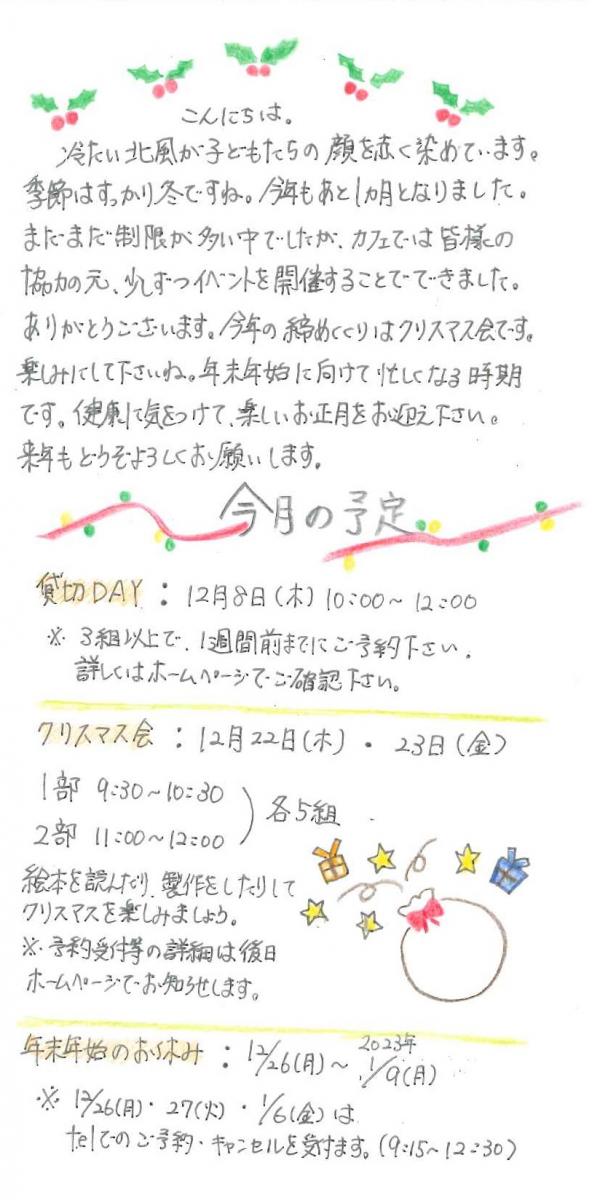 こんにちは。
冷たい北風が子どもたちの顔を赤く染めています。
季節はすっかり冬ですね。今年もあと1カ月となりました。
まだまだ制限が多い中でしたが、カフェでは皆様の
協力の元、少しずつイベントを開催することができました。
ありがとうございます。今年の締めくくりはクリスマス会です。
楽しみにして下さいね。年末年始に向けて忙しくなる時期
です。健康に気をつけて、楽しいお正月をお迎え下さい。
来年もどうぞよろしくお願いします。
今月の予定
貸切DAY : 12月8日(木) 10:00~12:00
※ 3組以上で、1週間前までにご予約下さい。
詳しくはホームページでご確認下さい。
クリスマス会 : 12月22日(木)・23日(金)
1部 9:30~10:30
2部 11:00~12:00
各5組
絵本を読んだり、製作をしたりして
クリスマスを楽しみましょう。
※予約受付等の詳細は後日
ホームページでお知らせします。
年末年始のお休み : 12/26(月)~2023年1/9(月)
※ 12/26(月)・27(火)・1/6(金)は
telでのご予約・キャンセルを受付ます。(9:15~12:30)